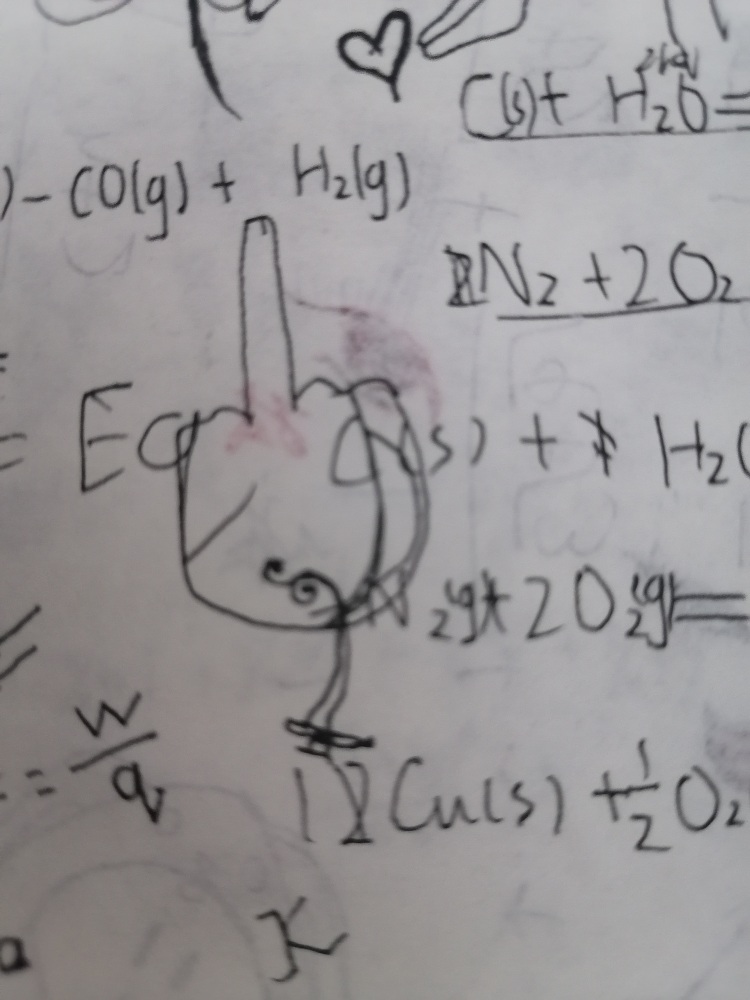 C(s) + H₂O =
) - CO(g) + H₂(g)
N₂ + 2O₂
= Eq
(s) + H₂
N₂(g) + 2O₂(g) =
= W/q
Cu(s) + 1/2 O₂
K